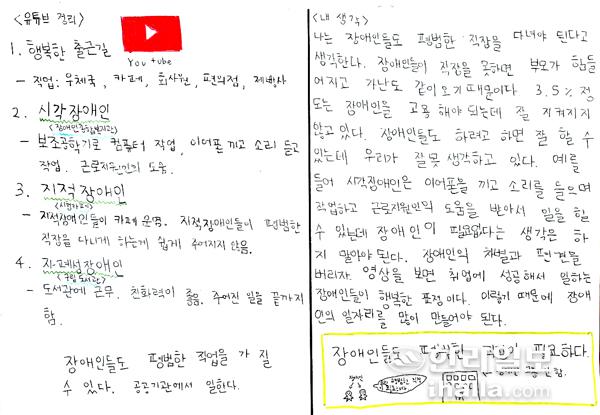 <유튜브 정리>
You tube
1. 행복한 출근길
- 직업: 우체국, 카페, 회사원, 편의점, 제빵사
2. 시각장애인
- 보조공학기로 컴퓨터 작업, 이어폰 끼고 소리 듣고
작업. 근로지원인의 도움.
3. 지적장애인
- 지적장애인들이 카페 운영. 지적장애인들이 평범한
직장을 다니게 하는게 쉽게 주어지지 않음.
4. 자폐성장애인
- 도서관에 근무. 친화력이 좋음. 주어진 일을 끝까지
함.
장애인들도 평범한 직업을 가질
수 있다. 공공기관에서 일한다.
<내 생각>
나는 장애인들도 평범한 직장을 다녀야 된다고
생각한다. 장애인들이 직장을 못하면 부모가 힘들
어지고 가난도 같이 오기 때문이다. 3.5%정
도는 장애인을 고용 해야 되는데 잘 지켜지지
않고 있다. 장애인들도 하려고 하면 잘 할 수
있는데 우리가 잘못 생각하고 있다. 예를
들어 시각장애인은 이어폰을 끼고 소리를 들으며
작업하고 근로지원인의 도움을 받아서 일을 할
수 있는데 장애인이 필요없다는 생각은 하
지 말아야 된다. 장애인의 차별과 편견을
버리자. 영상을 보면 취업에 성공해서 일하는
장애인들이 행복한 표정이다. 이렇기 때문에 장애
인의 일자리를 많이 만들어야 된다.
장애인들도 평범한 필요하다.
한라일보
ihalla.com